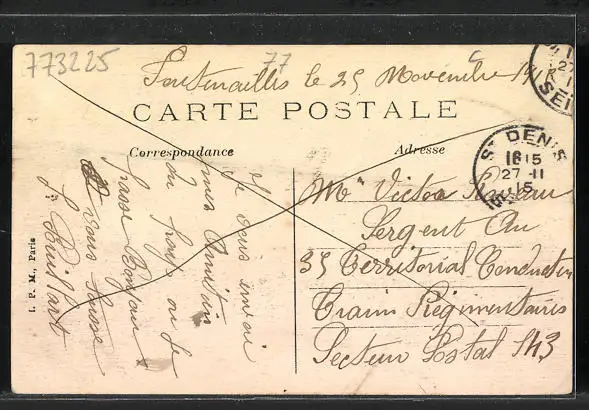 773225
77
Fontenailles le 25 Novembre 1915
CARTE POSTALE
Correspondance
Adresse
ST DENIS
16 15
27-11
15
SEINE
Je vous envoi
mes Amitiés
du Pays ou Je
passe Bonjour
a vous
I. P. M., Paris
Mr Victor
Sergent Au
35 Territorial Conducteur
Train Régimentaires
Secteur Postal 143